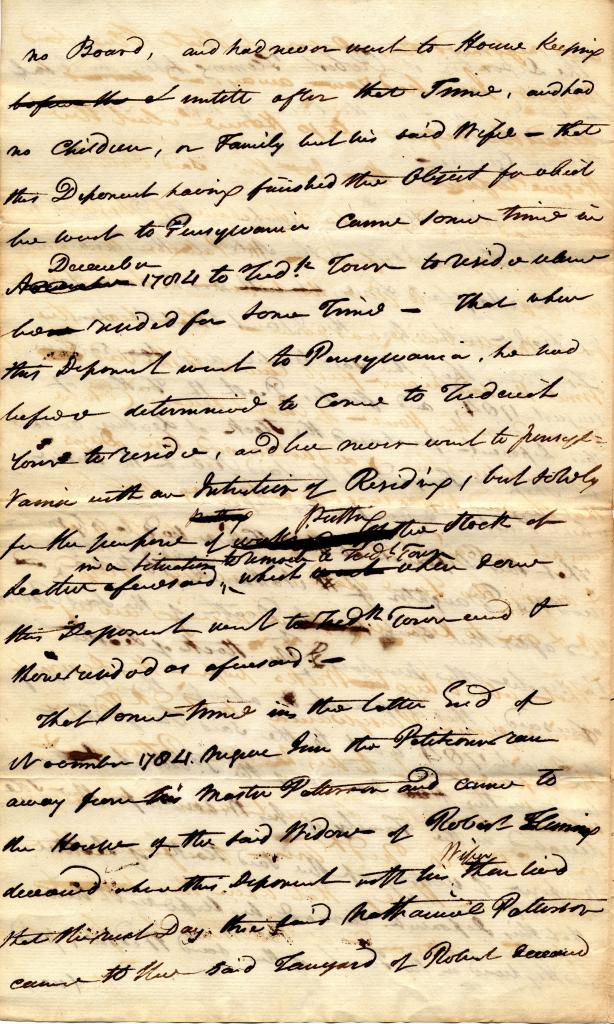 no Board, and had never went to House Keeping
before the untill after that Time, and had
no Children, or Family but his said Wife — that
this Deponent having finished the Object for which
he went to Pensylvania came some time in
December
November 1784 to Fredk Town to reside where
he resided for some Time — That when
this Deponent went to Pensylvania, he had
before determined to come to Frederick
Town to reside, and he never went to Pensyl=
vania with an Intention of Residing, but solely
Putting
for the purpose of the Stock of
in a Situation to remove to Fredk Town
Leather aforesaid, which when done
this Deponent went to Fredk Town and
there resided as aforesaid —
That some time in the latter End of
November 1784. Negroe Jim the Petitioner ran
away from his Master Patterson and came to
the House of the said Widow of Robert Fleming
Wife
deceased where this Deponent with his then lived
that the next Day the said Nathaniel Patterson
came to the said Tanyard of Robert deceased